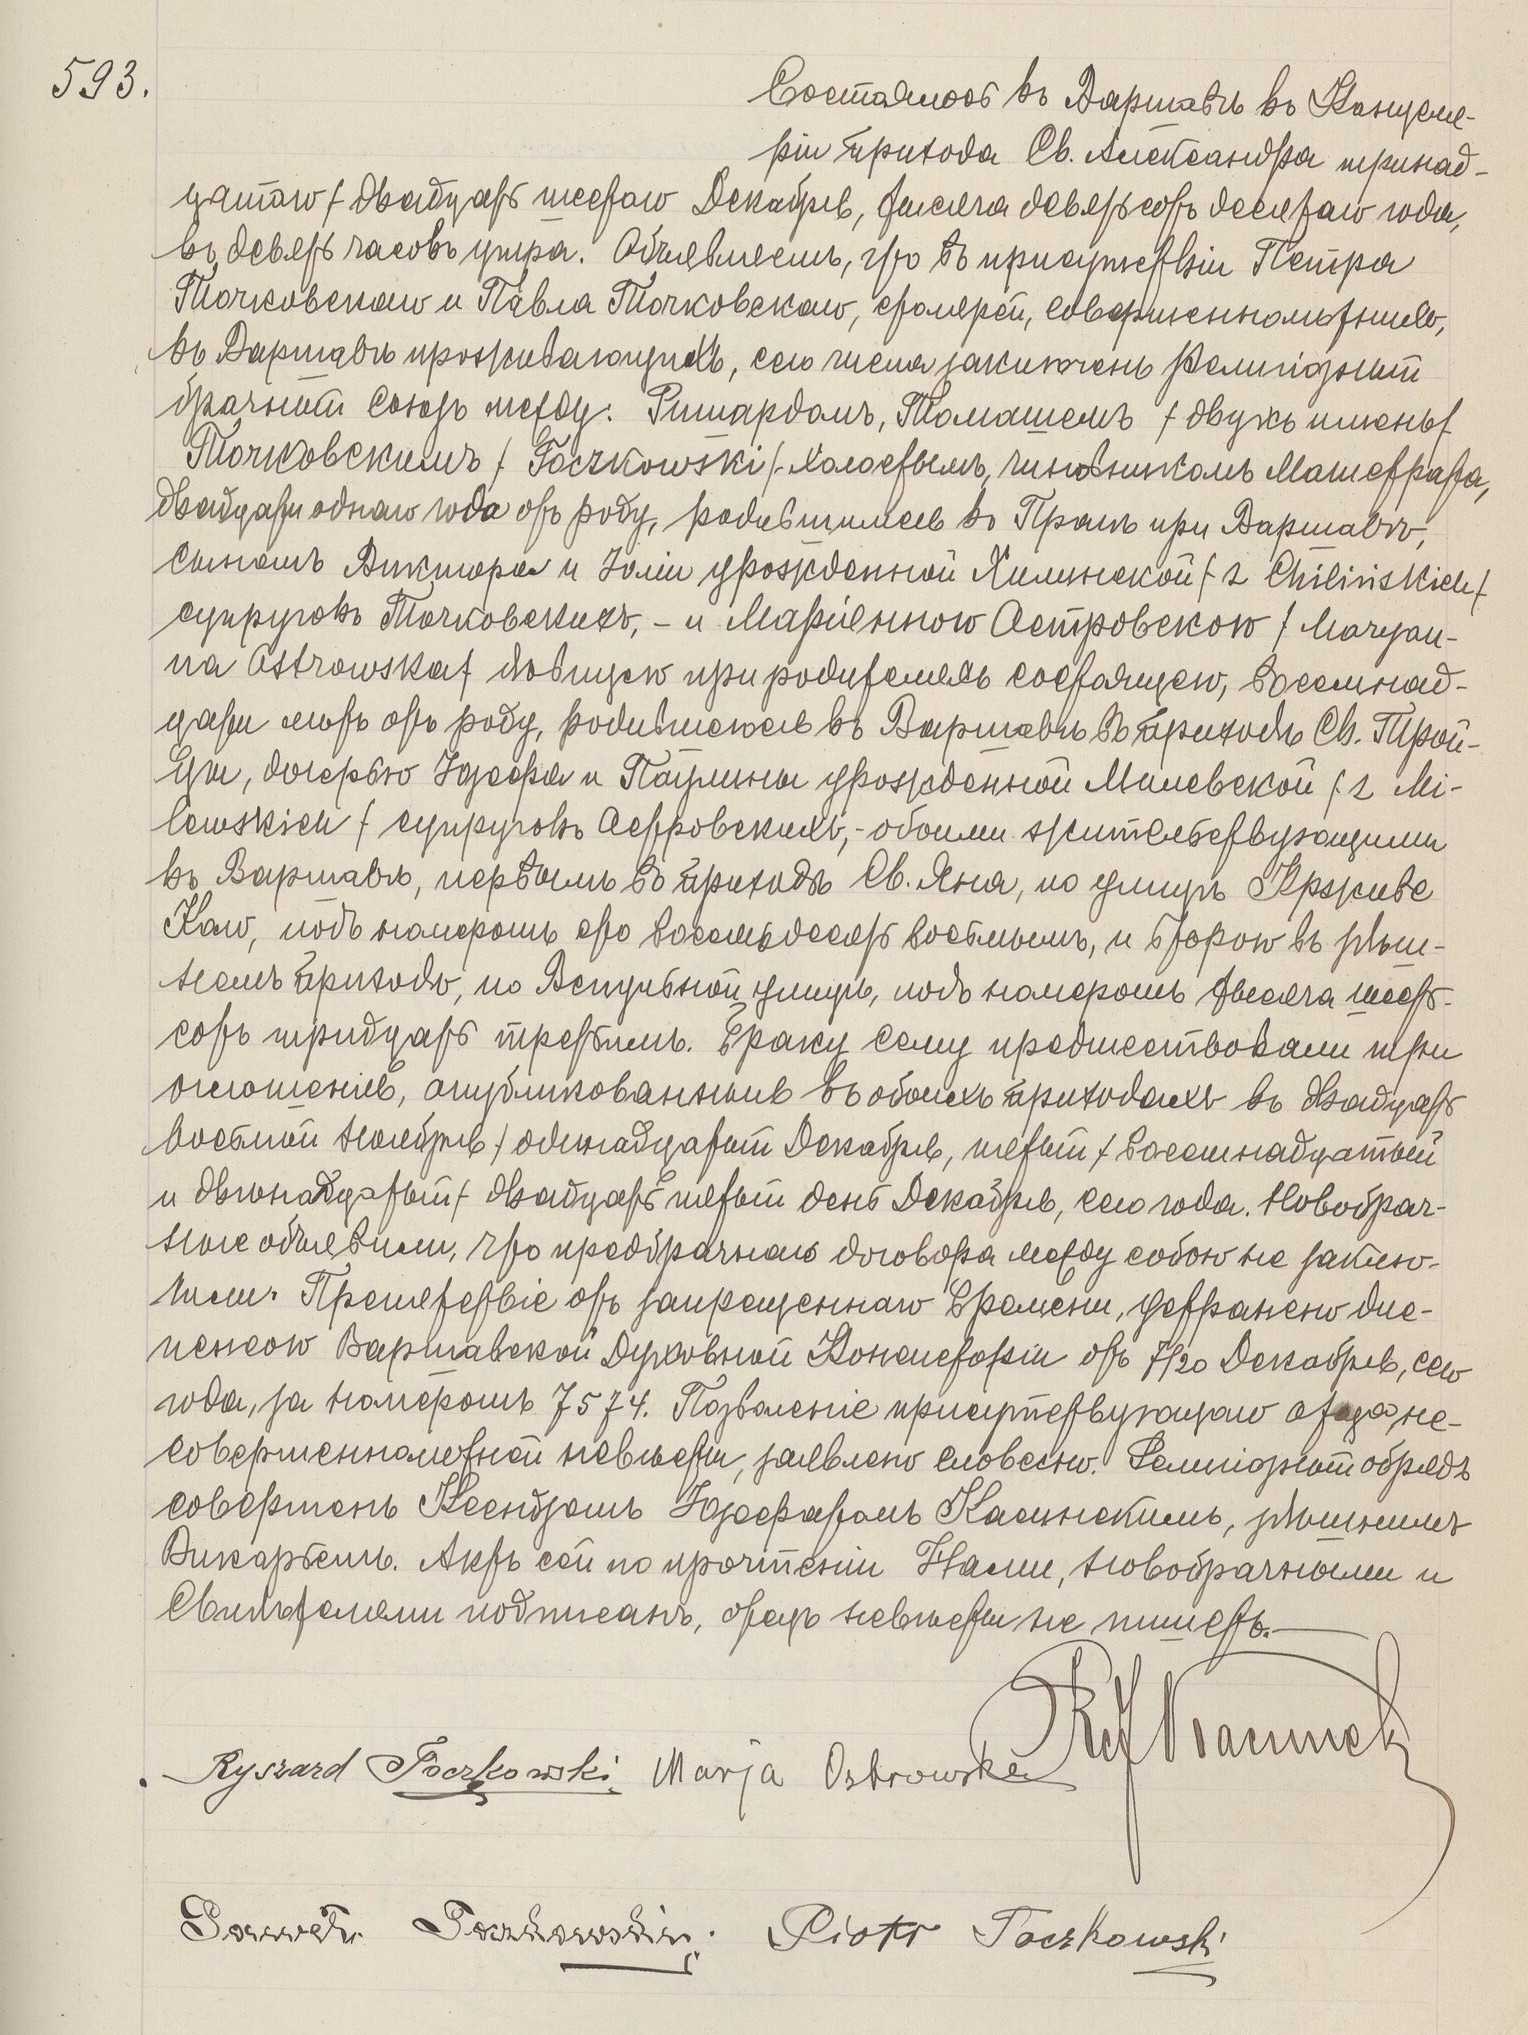 593.
Состоялось въ Варшавѣ въ Канцеля-
ріи прихода Св. Александра тринад-
цатаго / двадцать шестаго Декабря, тысяча девятьсотъ десятаго года,
въ девять часовъ утра. Объявляемъ, что въ присутствіи Петра
Точковскаго и Павла Точковскаго, столярей, совершеннолѣтнихъ,
въ Варшавѣ проживающихъ, сего числа заключенъ религіозный
брачный союзъ между: Ришардомъ, Томашемъ / двухъ именъ /
Точковскимъ / Toczkowski /- холостымъ, чиновникомъ Магистрата,
двадцати однаго года отъ роду, родившимся въ Прагѣ при Варшавѣ,
сыномъ Виктора и Юліи урожденной Хилинской / z Chilińskich /
супруговъ Точковскихъ, - и Маріанною Островскою / Maryan-
na Ostrowska / дѣвицею при родителяхъ состоящею, восемнад-
цати лѣтъ отъ роду, родившеюся въ Варшавѣ въ приходѣ Св. Трой-
цы, дочерью Іозефа и Паулины урожденной Милевской / z Mi-
lewskich / супруговъ Островскихъ, - обоими жительствующими
въ Варшавѣ, первымъ въ приходѣ Св. Яна, по улицѣ Крживе
Коло, подъ номеромъ сто восемьдесятъ восьмымъ, и второю въ здѣш-
немъ приходѣ, по Вспульной улицѣ, подъ номеромъ тысяча шесть-
сотъ тридцать третьимъ. Браку сему предшествовали три
оглашенія, опубликованныя въ обоихъ приходахъ въ двадцать
восьмой Ноября / одинадцатый Декабря, пятый / восемнадцатый
и двѣнадцатый / двадцать пятый день Декабря, сего года. Новобрач-
ные объявили, что предбрачнаго договора между собою не заклю-
чили. Препятствіе отъ запрещеннаго времени, устранено дис-
пенсою Варшавской Духовной Консисторіи отъ 7/20 Декабря, сего
года, за номеромъ 7574. Позволеніе присутствующаго отца, не-
совершеннолѣтней невѣсты, заявлено словесно. Религіозный обрядъ
совершенъ Ксендзомъ Іозефатомъ Касинскимъ, здѣшнимъ
Викаріемъ. Актъ сей по прочтеніи Нами, новобрачными и
Свидѣтелями подписанъ, отецъ невѣсты не пишетъ.
Ryszard Toczkowski Marja Ostrowska
Paweł Toczkowski Piotr Toczkowski